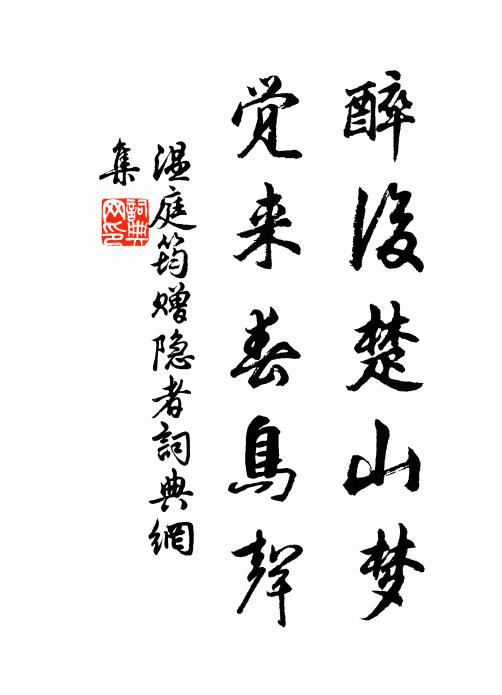 醉後楚山梦
觉来春鳥聲
温庭筠赠隐者詞典網
集
詞典
网印